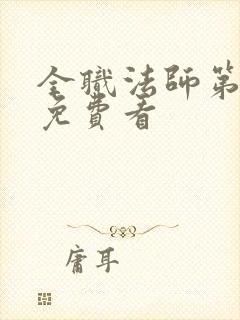 全職法師第
免費看
庸耳